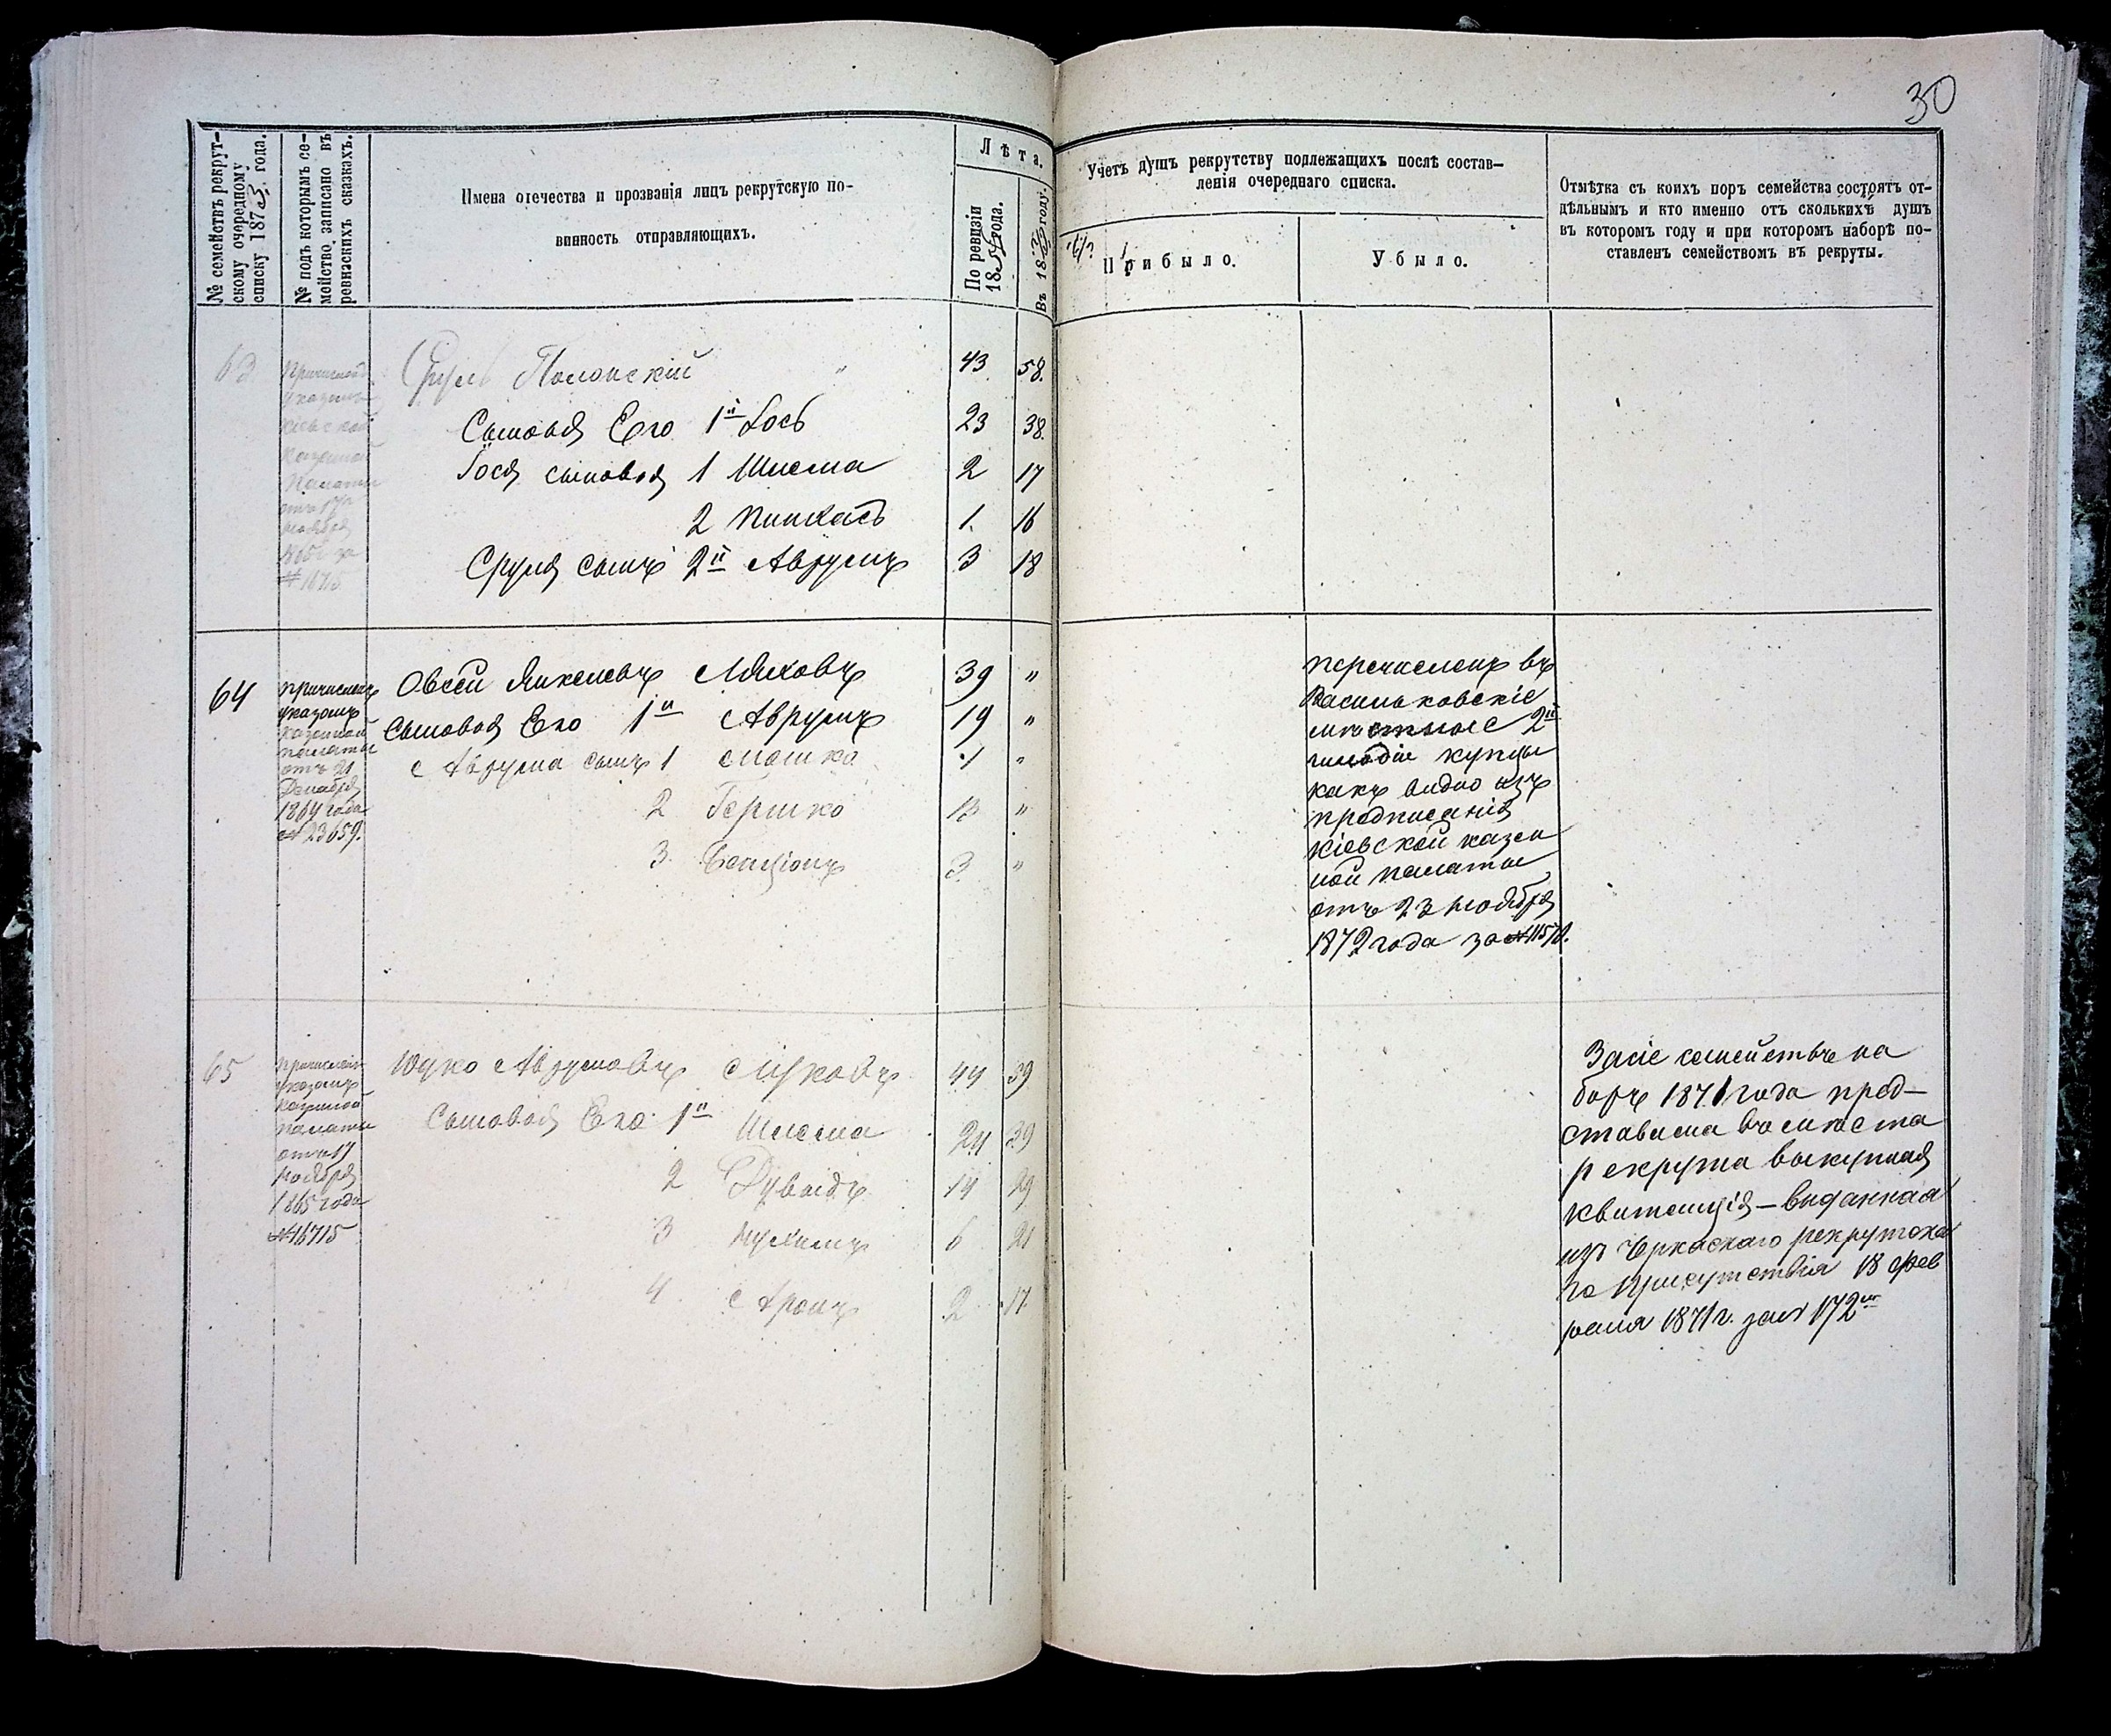 30
№ семействъ рекрут-
скому очередному
списку 1873 года.
№ подъ которымъ се-
мейство записано въ
ревизскихъ сказкахъ.
Имена отечества и прозванія лицъ рекрутскую по-
винность отправляющихъ.
Лѣта.
По ревизіи
18 года.
Въ 18 году.
Учетъ душъ рекрутству подлежащихъ послѣ состав-
ленія очереднаго списка.
Прибыло.
Убыло.
Отмѣтка съ коихъ поръ семейства состоятъ от-
дѣльнымъ и кто именно отъ сколькихъ душъ
въ которомъ году и при которомъ наборѣ по-
ставленъ семействомъ въ рекруты.
Сруль Полонскій 43 58.
Сыновья Его 1й Іось 23 38.
Іося сыновья 1 Шлема 2 17
2 Пинхасъ 1. 16
Сруля сынъ 2й Аврумъ 3 18
64
причисленъ
указомъ
казенной
палаты
отъ 21
Декабря
1864 года
№ 23659.
Овсей Янкелевъ Ляховъ 39 "
Сыновья Его 1й Аврумъ 19 "
Аврума сынъ 1 Мошко 1 "
2 Гершко 13 "
3 Бенціонъ 3 "
перечисленъ въ
Васильковскіе
2й
гильдіи купцы
какъ видно изъ
предписанія
кіевской казен
ной палаты
отъ 23 Ноября
1872 года за №
65
указомъ
казенной
палаты
отъ 17
Ноября
1865 года
№ 16715
Іуко Аврумовъ 44 39
Сыновья Его 1й Шлема 24 39
2 Дувидъ 14 29
3 6 21
4 Аронъ 2 17
семейство на
боръ 1871 года пред-
ставлена вмѣсто
рекрута выкупная
квитанція - выданная
изъ Черкаскаго рекрутска
го Присутствія 18 Фев
раля 1871 г. за № 172